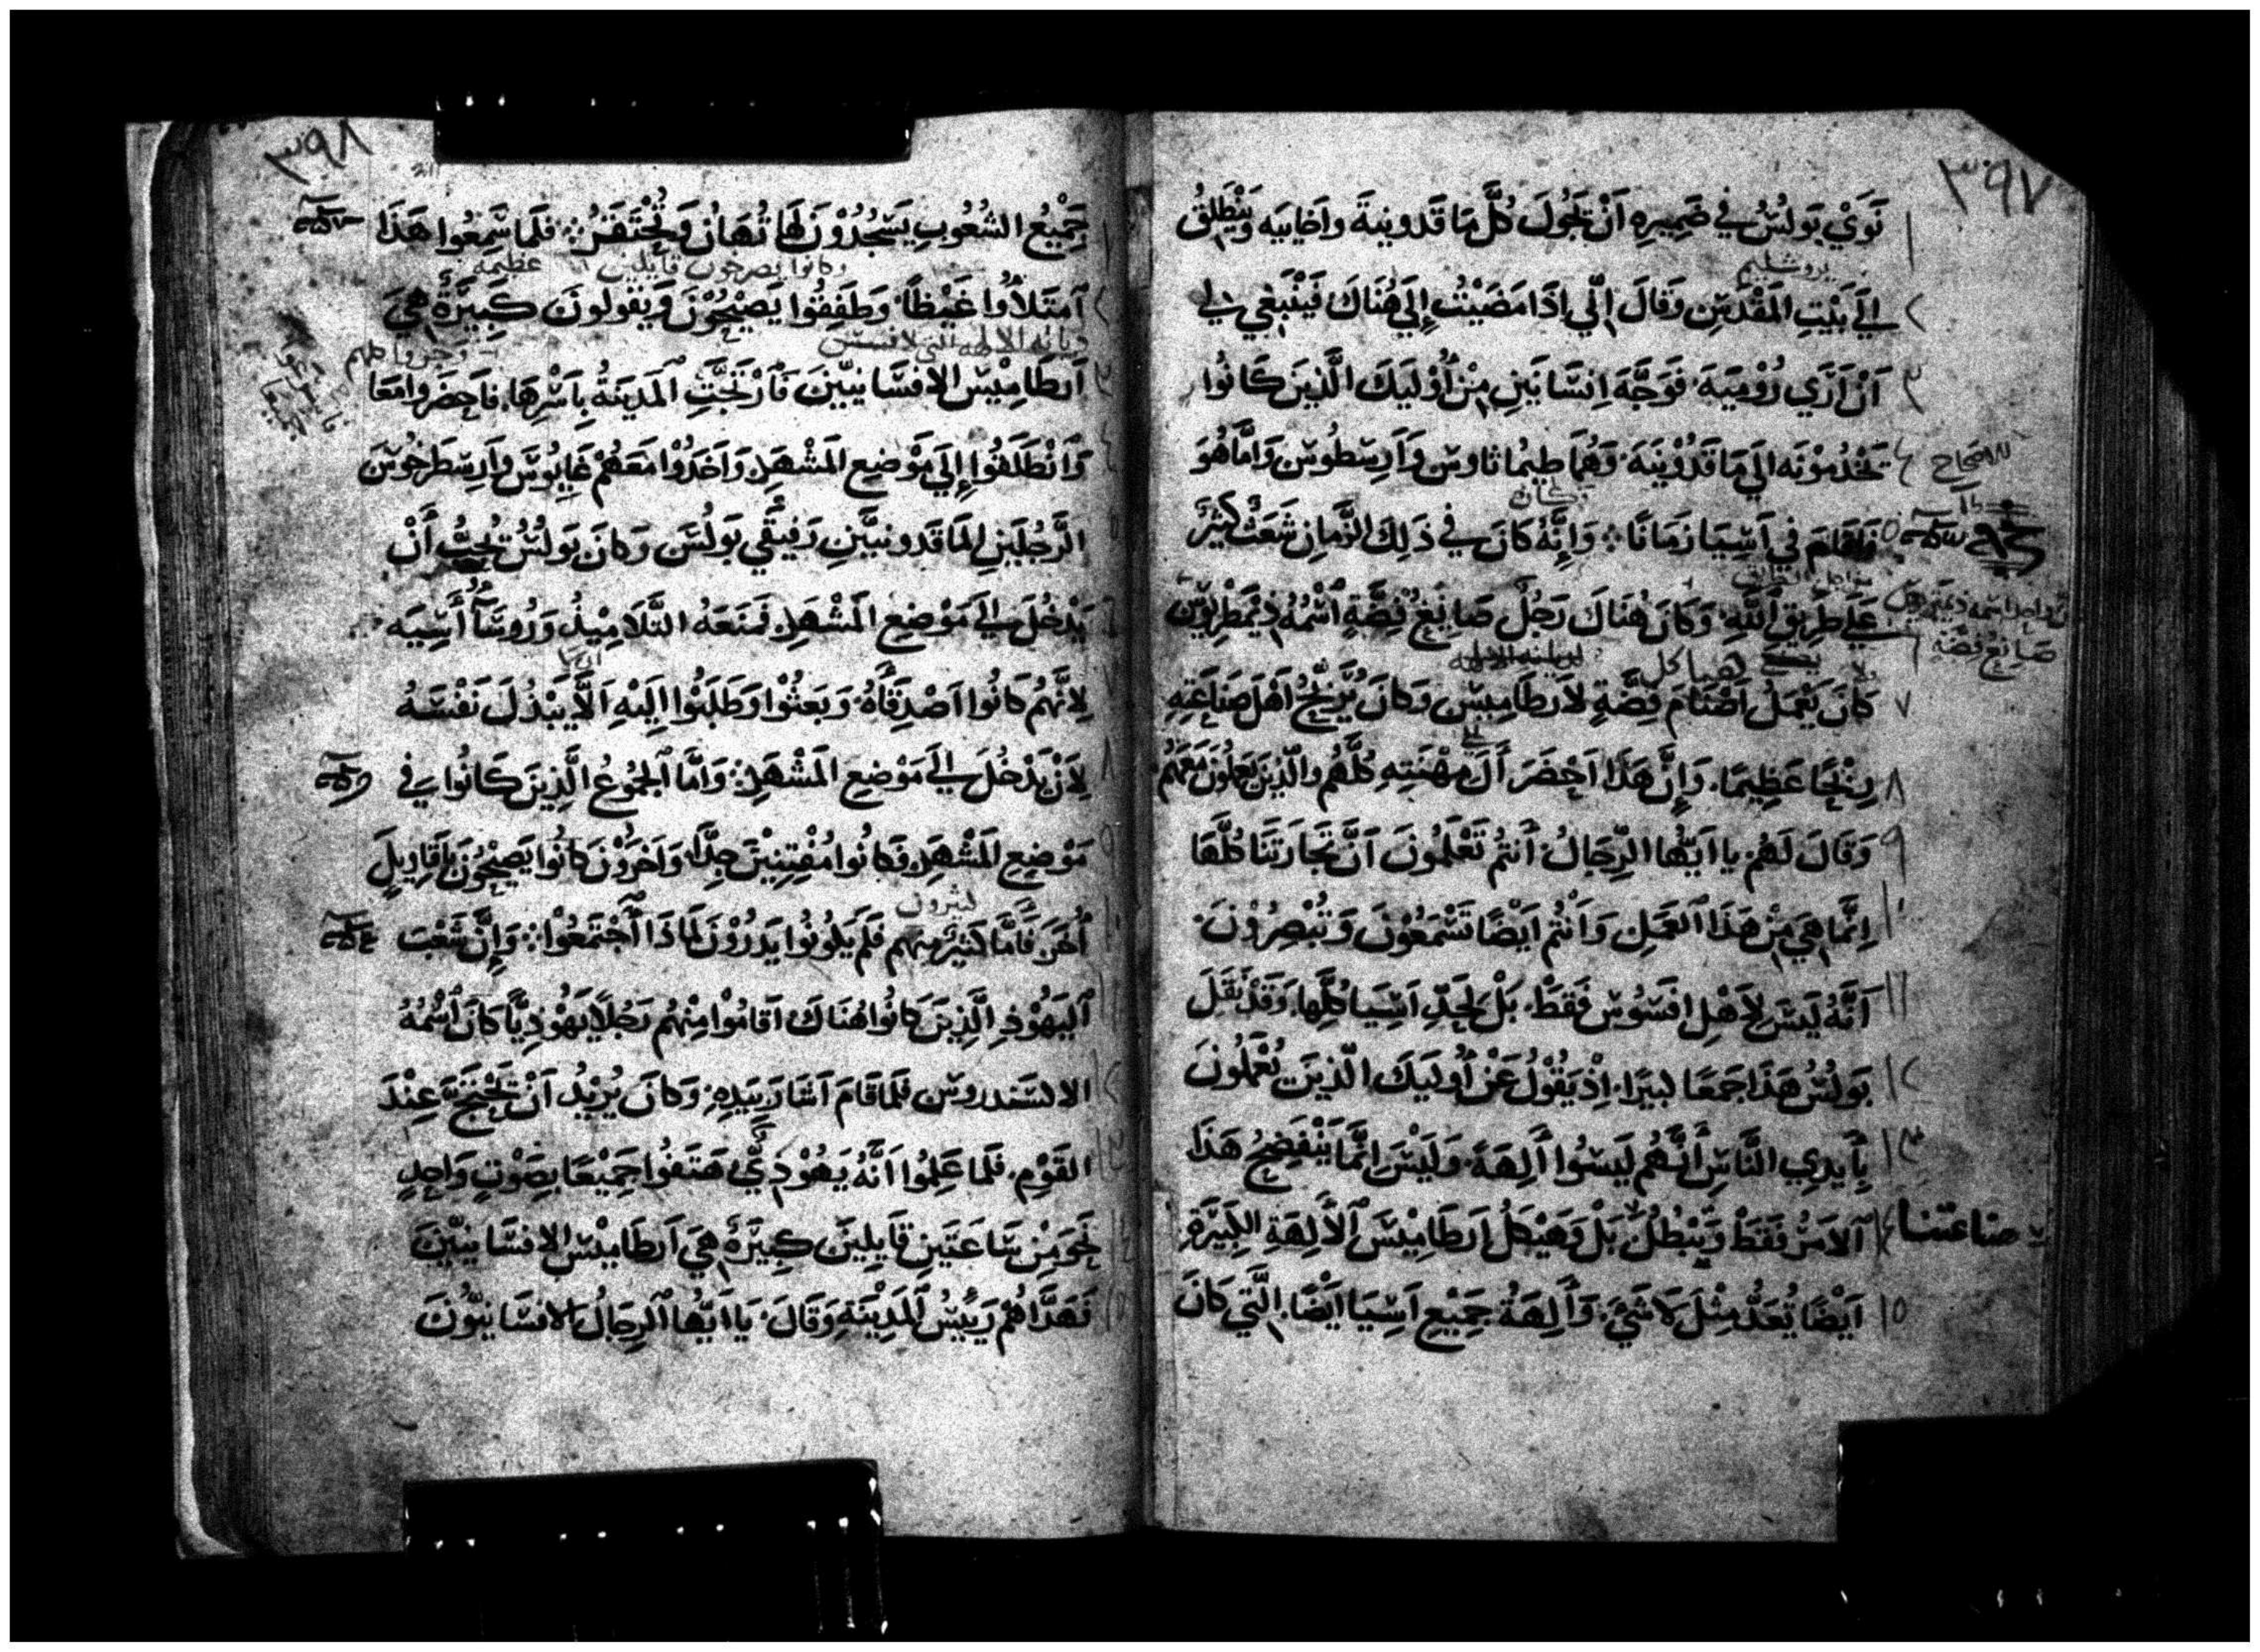 ٣٩٧
١ نَوَيْ بَولُسُ في ضَمِيرِهِ اَنْ تَجُولَ كُلَّ مَا قَدونِيةَ واَخايَيه وَيَنْطَلِقُ
يروشليم
٢ الَي بَيْتِ المَقْدِسِ وَقَالَ اِنِّي اِذَا مَضَيْتُ إلَي هُنَاكَ فَينْبَغي لي
٣ اَنْ اَرَي رُوْمِيَةَ فَوَجَّهَ اِنسَانَينِ مِنْ أُوْليَكَ الَّذِينَ كَانُوا
٤ تَخْدُمُوْنَه الَي مَا قَدُوْنِيَةَ وَهُمَا طِيمُاثاوس وَأَرِسْطُوس وَامَّا هُوَ
الاصحاح
وكان
٥ فَاقَامَ في آسِيَا زَمَانًا وَإِنَّهُ كَانَ في ذَلِكَ الزَّمانِ شَعَثٌ كَثِيْرٌ
٦ عَلَي طَرِيقِ اللَّهِ وَكَانَ هُنَاكَ رَجُلٌ صَانِعُ فِضَّةٍ اَسْمُهُ دِيمَطْرِيوْس
صَانِعُ فِضَّةٍ
هياكل
٧ كَانَ يَعْمَلُ اَصْنَامَ فِضَّةٍ لاَرطَامِيسَ وَكَانَ يُرَبِّحُ اَهْلَ صَنَاعَتِهِ
٨ رِبْحًا عَظِيمًا وَإِنَّ هَذَا اَحْضَرَ أَلَ مِهْنَتِهِ كُلَّهُم وَالَّذِينَ يَعمَلُونَ مَعَهُمُ
٩ وَقَالَ لَهُم يَا اَيُّهَا الرِّجَالُ أَنتُم تَعْلَمُونَ اَنَّ تَجَارَتَنَا كُلَّهَا
١٠ اِنَّمَا هِيَ مِنْ هَذَا العَمَلِ وَأَنْتُم اَيْضًا تَسْمَعُوْنَ وَتُبْصِرُوْنَ
١١ اَنَّهُ لَيْسَ لاَهْلِ افَسُوسَ فَقَطْ بَلْ لَحَدِّ اَسِيَا كُلِّهَا وَقَدْ نَقَلَ
١٢ بَولُسُ هَذَا جَمعًا كبيرًا اِذْ يَقُوْلُ عَنْ أُولَيكَ الَّذِينَ تُعْمَلُونَ
١٣ بِأَيدِي النَّاسِ أَنَّهُم لَيسُوا أَلِهَةً وَلَيْسَ اِنَّمَا يَنْفَضِحُ هَذَا
صناعتنا
١٤ اَلامَرُ فَقَطْ وَيَبْطُلُ بَلْ وَهَيْكَلُ اَرطَامِيْسَ اَلأَلِهَةِ الكَبِيْرَةِ
١٥ اَيْضًا يُعَدُّ مِثْلَ لاَشَيْ وَأَلِهَةُ جَمِيْعِ اَسِيَا اَيْضًا الَّتي كَانَ
٣٩٨
١ جَمِيْعُ الشُعُوبِ يَسْجُدُوْنَ لَهَا تُهَانُ وَتُحْتَقَرُ فَلَمَا سَمِعُوا هَذَا
وكانوا يصرخون قايلين عظيمة
٢ اَمتَلأُوا غَيْظًا وَطَفِقُوا يَصِيْحُوْنَ وَيَقُولُونَ كَبِيَرَةٌ هِيَ
٣ اَرطَامِيْسُ الافسَانِيِّينَ فَأرْتَجَّتِ اَلْمَدِينَةُ بِاَسْرِهَا فَاحضَروا مَعًا
٤ وَانْطَلَقُوا إِلَي مَوْضِعِ المَشْهَدِ وَاَخَذُوْا مَعَهُمْ غَايُوْسَ وَأَرِسْطَرخُوْسَ
٥ الرَّجُلَينِ المَا قَدونِيَّينِ رَفِيْقَي بَولُسَ وَكَانَ بَولُسُ تُحِبُّ أَنْ
٦ يَدْخُلَ الَي مَوْضِعِ المَشْهَدِ فَمنَعَهُ التَّلامِيْذُ وَرُوسَآ أَسِيَه
٧ لاِنَّهُم كَانُوا اَصْدِقَآهُ وَبَعَثُوْا وَطَلَبُوا اِلَيْهِ اَلاَّ يَبْذُلَ نَفْسَهُ
٨ لاِنْ يَدْخُلَ الَي مَوْضِعِ المَشْهَدِ وَامَّا اَلجُمُوعُ الَّذِينَ كَانُوا في
٩ مَوْضِعِ المَشْهَدِ فَكَانُوا مُفْتِنِيْنَ جِدًّا وَاخَرُوْنَ كَانُوا يَصِيْحُونَ بِاَقَاوِيلٍ
كثيرون
١٠ أُخَرَ فَامَّا كَثيرٌ مِنهُم فَلَم يَكُونُوا يَدرُوْنَ لمَاذَا اَجْتَمَعُوْا وَإِنَّ شَعْبَ
١١ اَليَهُوْدِ الَّذِينَ كَانُوا هُنَاكَ اَقَامُوْا مِنْهُم رَجُلاً يَهُوْدِيًّا كَانَ اَسْمُهُ
١٢ الاسْكندروس فلمَا قَامَ اَشَارَ بِيَدِهِ وَكَانَ يُرِيْدُ اَنْ تَحْتَجَّ عِنْدَ
١٣ القَوْمِ فَلَمَا عَلِمُوا اَنَّهُ يَهُوْدِيٌّ هَتَفُوا جَمِيْعًا بِصَوْتٍ وَاحِدٍ
١٤ نَحْوَ مِنْ سَاعَتَينِ قَايِلِيْنَ كَبِيَرَةٌ هِيَ اَرطَامِيْسُ الافسَانِيّيْنَ
١٥ فَهَدَّاهُم رَيِيْسُ الْمَدِيْنَةِ وَقَالَ يَا اَيُّهَا اَلرِجَالُ الافسَانِيّوُنَ